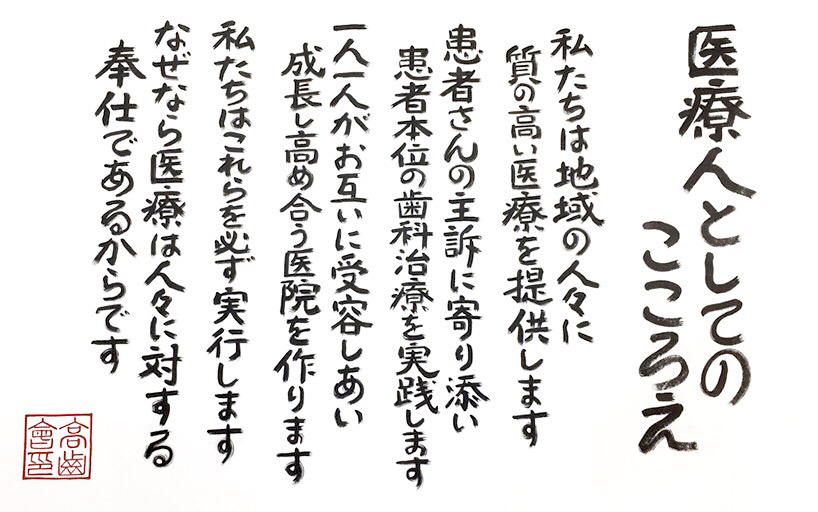 医療人としての
こころえ
私たちは地域の人々に
質の高い医療を提供します
患者さんの主訴に寄り添い
患者本位の歯科治療を実践します
一人一人がお互いに受容しあい
成長し高め合う医院を作ります
私たちはこれらを必ず実行します
なぜなら医療は人々に対する
奉仕であるからです
高齒
會印